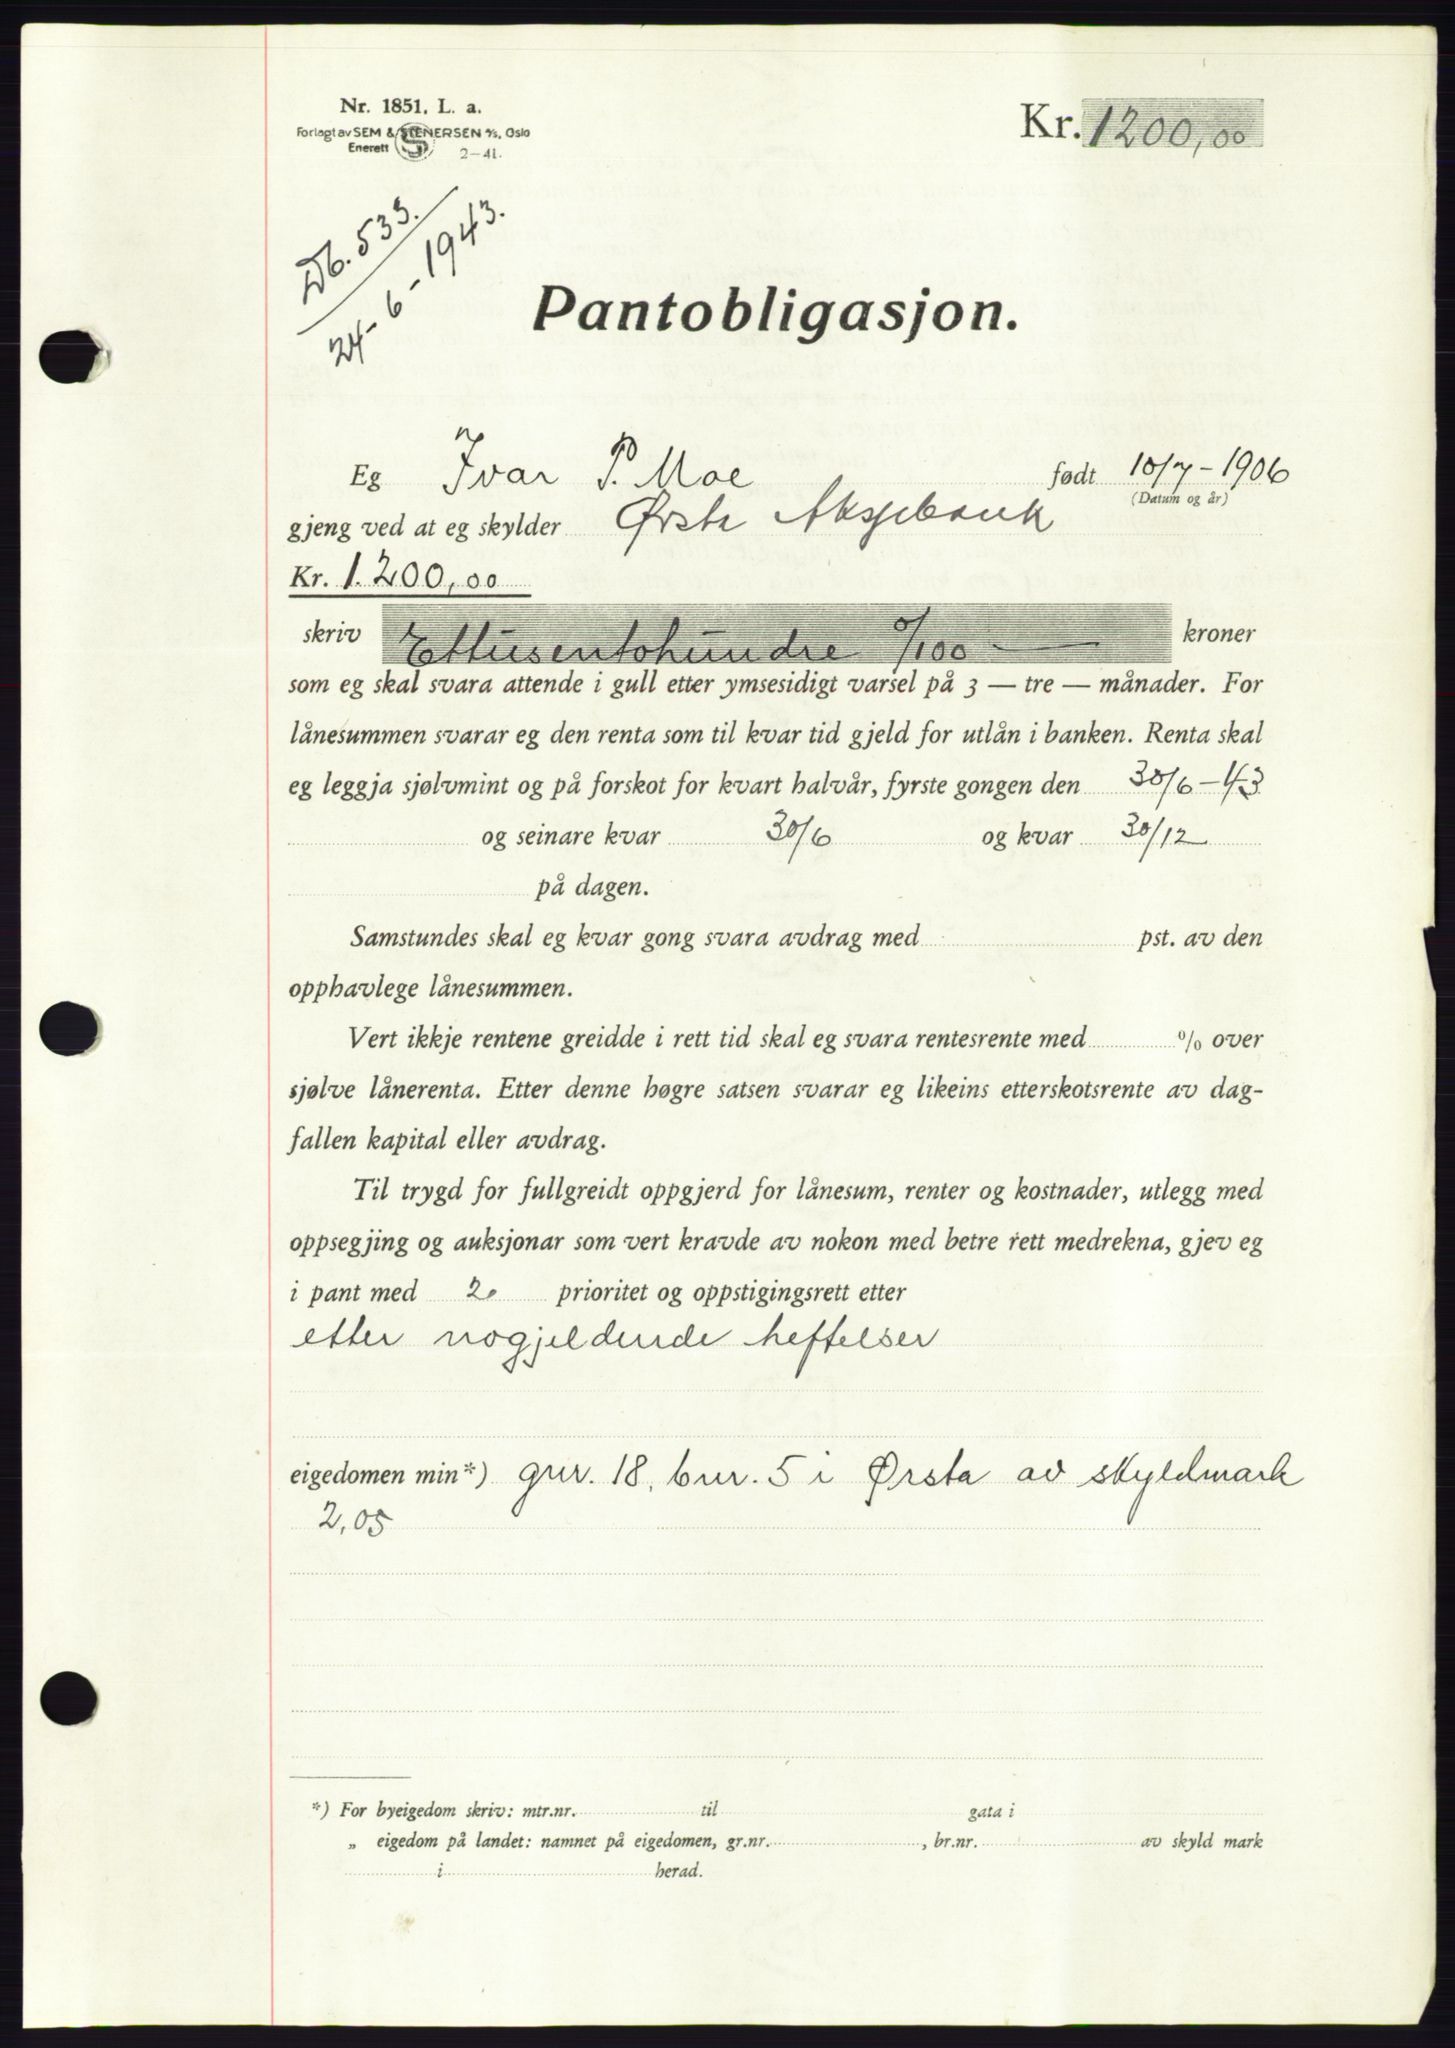 Nr. 1851. L. a.
Forlagt av SEM & STENERSEN A/S, Oslo
Enerett 2-41.
Kr. 1200,00
Db. 533.
24-6-1943.
Pantobligasjon.
Eg Ivar P. Moe født 10/7-1906
(Datum og år)
gjeng ved at eg skylder Ørsta Aksjebank
Kr. 1.200,00
skriv Ettusentohundre 0/100 — kroner
som eg skal svara attende i gull etter ymsesidigt varsel på 3 — tre — månader. For
lånesummen svarar eg den renta som til kvar tid gjeld for utlån i banken. Renta skal
eg leggja sjølvmint og på forskot for kvart halvår, fyrste gongen den 30/6-43
og seinare kvar 30/6 og kvar 30/12
på dagen.
Samstundes skal eg kvar gong svara avdrag med pst. av den
opphavlege lånesummen.
Vert ikkje rentene greidde i rett tid skal eg svara rentesrente med % over
sjølve lånerenta. Etter denne høgre satsen svarar eg likeins etterskotsrente av dag-
fallen kapital eller avdrag.
Til trygd for fullgreidt oppgjerd for lånesum, renter og kostnader, utlegg med
oppsegjing og auksjonar som vert kravde av nokon med betre rett medrekna, gjev eg
i pant med 2. prioritet og oppstigingsrett etter
etter nogjeldende heftelser
eigedomen min*) gnr. 18, bnr. 5 i Ørsta av skyldmark
2,05
*) For byeigedom skriv: mtr.nr. til gata i
„ eigedom på landet: namnet på eigedomen, gr.nr. , br.nr. av skyld mark
i herad.